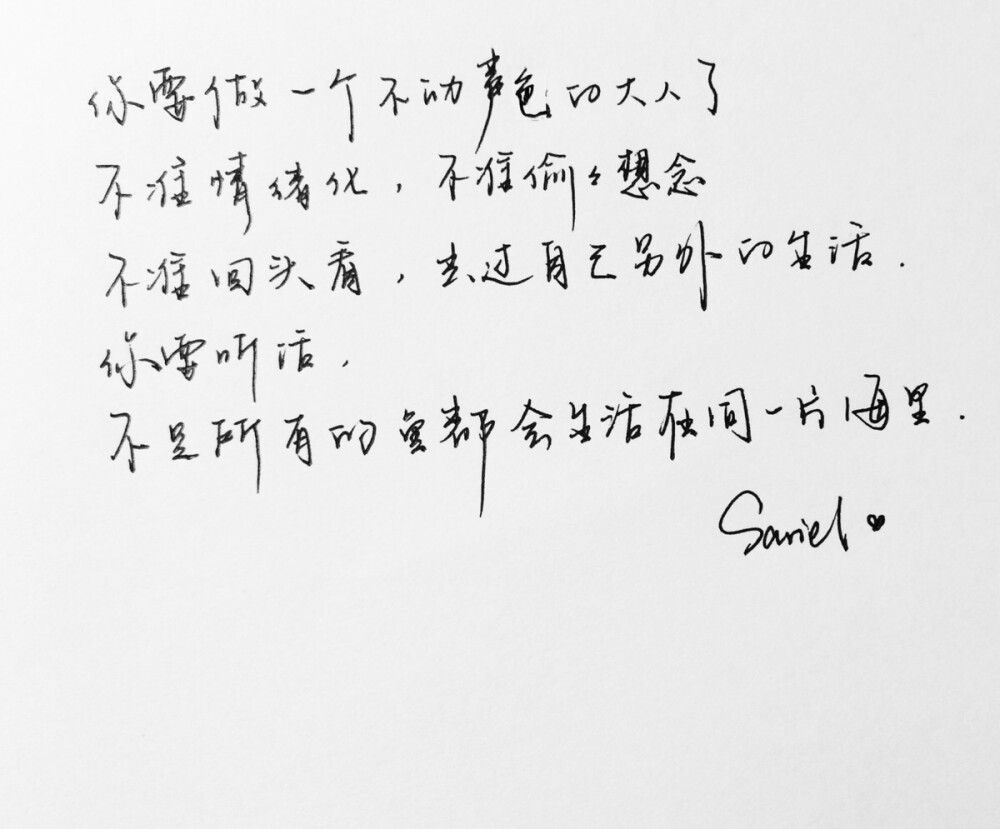 你要做一个不动声色的大人了
不准情绪化,不准偷々想念
不准回头看,去过自己另外的生活.
你要听话,
不是所有的鱼都会生活在同一片海里.
Sariel♥